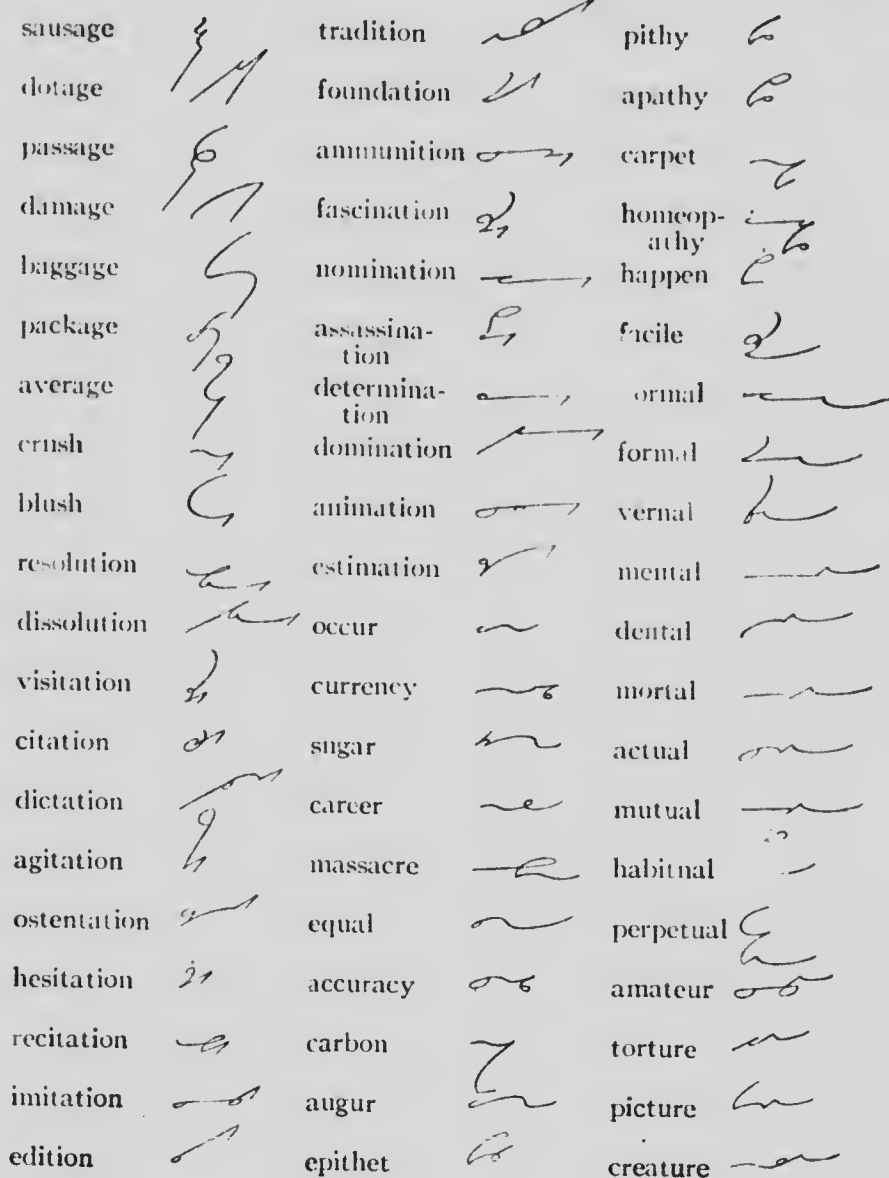 sausage
dotage
passage
damage
baggage
package
average
crush
blush
resolution
dissolution
visitation
citation
dictation
agitation
ostentation
hesitation
recitation
imitation
edition
tradition
foundation
ammunition
fascination
nomination
assassina-
tion
determina-
tion
domination
animation
estimation
occur
currency
sugar
career
massacre
equal
accuracy
carbon
augur
epithet
pithy
apathy
carpet
homeop-
athy
happen
facile
ormal
formal
vernal
mental
dental
mortal
actual
mutual
habitual
perpetual
amateur
torture
picture
creature